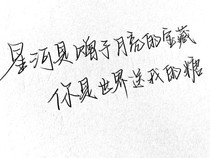 星河是于月亮的宝藏
你是世界送我的糖